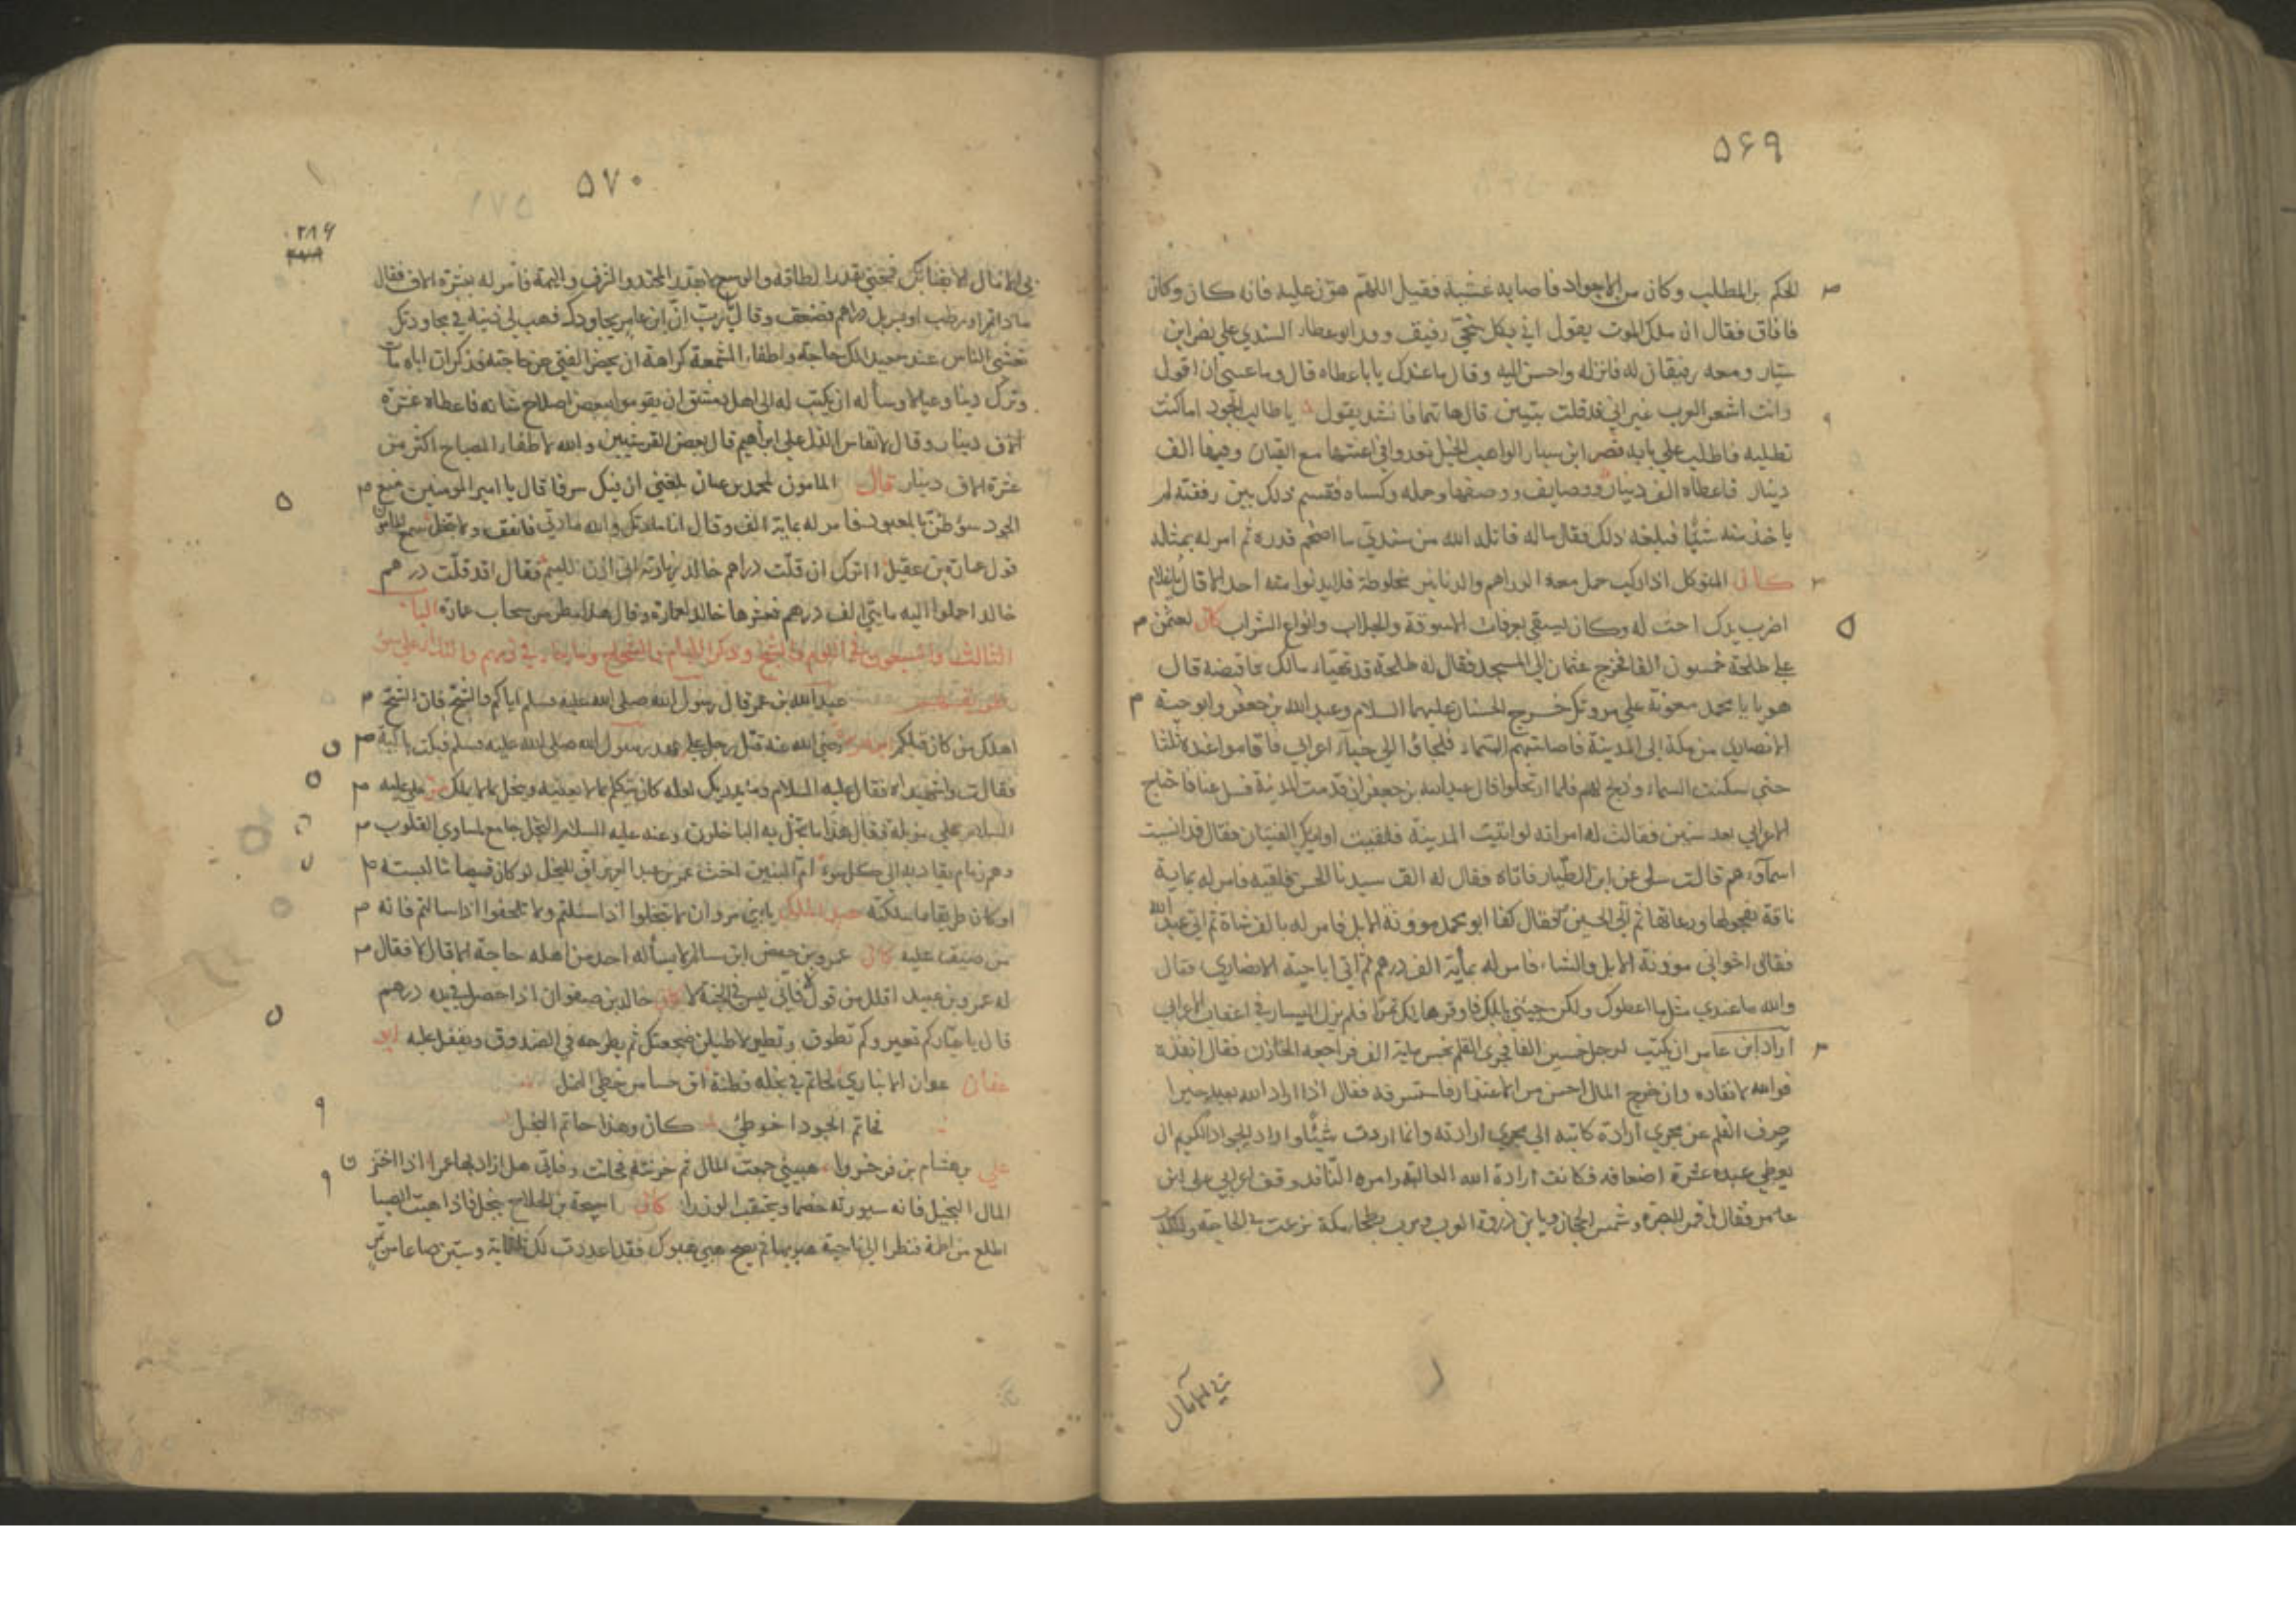 ٥۶٩
الحكم بن المطلب وكان من الاجواد فاصابه غشية فقيل اللهم هون عليه فانه كان وكان
فافاق فقال ان ملك الموت يقول اني بكل سخي رفيق ووفد ابو عطاء السندي علي نصر ابن
سيار ومعه رفيقان له فانزله واحسن اليه وقال ما عندك يا با عطاء قال وما عسى ان اقول
وانت اشعر العرب غير اني قد قلت بيتين قال هاتهما فانشد يقول يا طالب الجود اما كنت
تطلبه فاطلب علي بابه نصر ابن سيار الواهب الخيل تعدو في اعنتها مع القيان وفيها الف
دينار فاعطاه الف دينار ووصايف ووصفا وحمله وكساه فقسم ذلك بين رفقته لم
ياخذ منه شيئا فبلغه ذلك فقال ماله قاتله الله من سندي ما اضخم قدره ثم امر له بمثله
كان المتوكل اذا ركب حمل معه الدراهم والدنانير مخلوطة فلا يدنوا منه احد الا قال يا غلام
اضرب يدك احث له وكان يسقي بعرفات الاسوقة والجلاب وانواع الشراب كان لعثمن
علي طلحة خمسون الفا فخرج عثمان الي المسجد فقال له طلحة قد تهياء مالك فاقبضه قال
هو يا با محمد معونة علي مروتك خرج الحسنان عليهما السلام وعبد الله بن جعفر وابو حبة
الانصاري من مكة الى المدينة فاصابتهم السماء فلجاؤا الي خباء اعرابي فاقاموا عنده ثلثا
حتى سكنت السماء وذبح لهم فلما ارتحلوا قال عبد الله بن جعفر ان قدمت المدينة فسل عنا فاحتاج
الاعرابي بعد سنين فقالت له امراته لو اتيت المدينة فلقيت اولئك الفتيان فقال قد انسيت
اسماؤهم قالت سل عن ابن الطيار فاتاه فقال له الق سيدنا الحسن فلقيه فامر له بماية
ناقة بفحولها ورعاتها ثم اتي الحسين فقال كفانا ابو محمد موونة الابل فامر له بالف شاة ثم اتي عبد الله
فقال كفاني اخواني موونة الابل والشاء فامر له بمأية الف درهم ثم اتي ابا حبة الانصاري فقال
والله ما عندي مثل ما اعطوك ولكن جيئني بابلك فاوقرها لك تمرا فلم يزل اليسار في اعقاب الاعرابي
اراد ابن عامر ان يكتب لرجل خمسين الفا فجرى القلم بخمس ماية الف فراجعه الخازن فقال انفذه
فوالله لانفاذه وان خرج المال احسن من الاعتذار فاستسرفه فقال اذا اراد الله بعبد خيرا
صرف القلم عن مجري ارادة كاتبه الي مجري ارادته وانما اردت شيئا واراد الجواد الكريم ان
يعطي عبده عشرة اضعافه فكانت ارادة الله الغالبة وامره النافذ وقف اعرابي على ابن
عامر فقال يا قمر البصرة وشمس الحجاز ويا بن ذروة العرب وترب بطحا مكة نزعت بي الحاجة واكدت
بي الامال
٥٧٠
٢٨۶
بي الامال الا بفنائك فمنحني بقدر الطاقة والوسع لا بقدر المجد والشرف والهمة فأمر له بعشرة الاف فقال
ماذا تمرا ورطب او بسر بل دراهم فصعق وقال يا رب ان ابن عامر يجاودك فهب لي ذنبه في مجاودتك
تعشى الناس عند سعيد الملك حاجة واطفاء الشمعة كراهة ان يحصر الفتي عن حاجته فذكر ان اباه مات
وترك دينا وعيالا وسأله ان يكتب له الى اهل دمشق ان يقوموا ببعض اصلاح شانه فاعطاه عشرة
الاف دينار وقال لا تقاس الذل علي ابراهيم قال بعض القرشيين والله لاطفاء المصباح اكثر من
عشرة الاف دينار قال المامون لمحمد بن عباد بلغني ان فيك سرفا قال يا امير المومنين منع
الجود سؤ ظن بالمعبود فامر له بماية الف وقال انا مادتك والله مادتي فانفق ولا تبخل سمع المامون
قول عمارة بن عقيل أاترك ان قلت دراهم خالد زيارته اني اذن للئيم فقال اقد قلت درهم
خالد احملوا اليه مايتي الف درهم فعشرها خالد لعمارة وقال هذا مطر من سحاب عمارة الباب
الثالث والسبعون في اللوم والشح وذكر اللئام
عبد الله بن عمر قال رسول الله صلى الله عليه وسلم اياكم والشح فان الشح
اهلك من كان قبلكم رضي الله عنه قتل رجل علي عهد رسول الله صلى الله عليه وسلم فبكت باكية
فقالت واشهيداه فقال عليه السلام وما يدريك لعله كان يتكلم بما لا يعنيه ويبخل بما لا يملك مر علي عليه
السلام علي مزبلة فقال هذا ما بخل به الباخلون وعنه عليه السلام البخل جامع لمساوي القلوب
وهو زمام يقاد به الى كل سوء ام البنين اخت عمر بن عبد العزيز اف للبخل لو كان قميصا ما لبسته
او كان طريقا ما سلكته عبد الملك يا بني مروان لا تبخلوا اذا سئلتم ولا تلحفوا اذا سالتم فانه
من ضيق ضيق عليه كان عمرو بن حفص ابن سالم لا يسأله احد من اهله حاجة الا قال لا فقال
له عمرو بن عبيد اقلل من قول لا فاني ليس في الجنة لا خالد بن صفوان اذا حصل في يده درهم
قال يا عيار كم تعير وكم تطوف وتطير لاطيلن ضجعتك ثم يطرحه في الصندوق ويقفل عليه ابو
عفان عوان الانباري لحاتم في بخله فطنة ادق حسا من خطي النمل
فحاتم الجود اخو طيئ كان وهذا حاتم البخل
علي بن هشام بن فرخسروا هبيني جمعت المال ثم خزنته فحانت وفاتي هل ازاد به عمرا اذا اختزن
المال البخيل فانه سيورثه خصما ويحتقب الوزرا كان احيحة بن الجلاح بخيلا فاذا هبت الصبا
اطلع من اطمة فنظر الي ناحية هبوبها ثم يصيح هبي هبوبك فقد اعددت لك ثلثماية وستين صاعا من